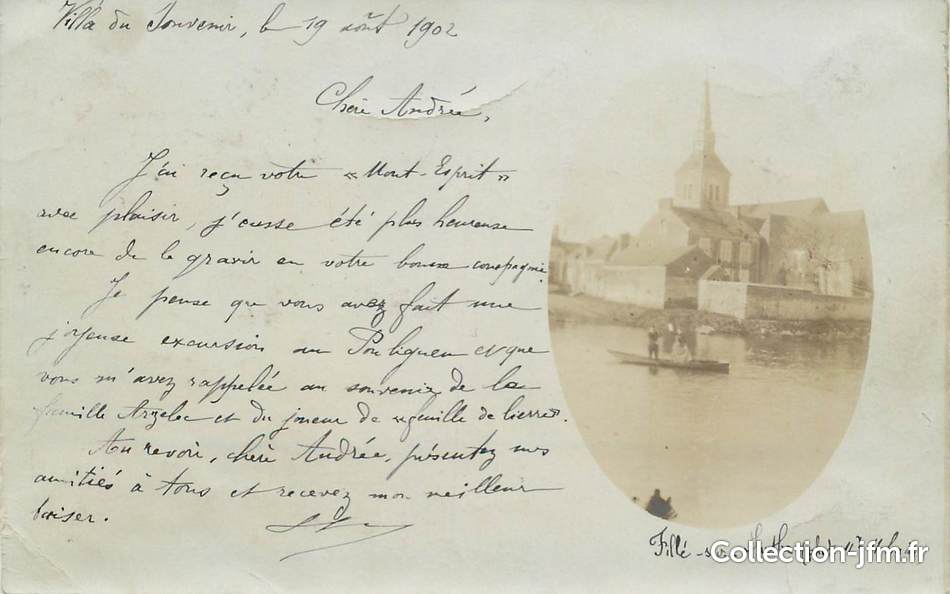 Villa du Souvenir, le 19 août 1902
Chère Andrée,
J'ai reçu votre « Mont-Esprit »
avec plaisir, j'eusse été plus heureuse
encore de le gravir en votre bonne compagnie
Je pense que vous avez fait une
joyeuse excursion au Pouliguen et que
vous m'avez rappelée au souvenir de la
famille Arzelec et du joueur de « feuille de lierre ».
Au revoir, chère Andrée, présentez mes
amitiés à tous et recevez mon meilleur
baiser.
Fillé-
Collection-jfm.fr